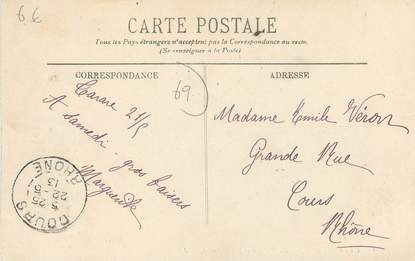 6 €
CARTE POSTALE
Tous les Pays étrangers n'acceptent pas la Correspondance au recto.
(Se renseigner à la Poste)
CORRESPONDANCE
ADRESSE
69
Tarare 21/5
A samedi - gros baisers
Marguerite
Madame Emile Véron
Grande Rue
Cours
Rhône
COURS
RHONE
22-5
13